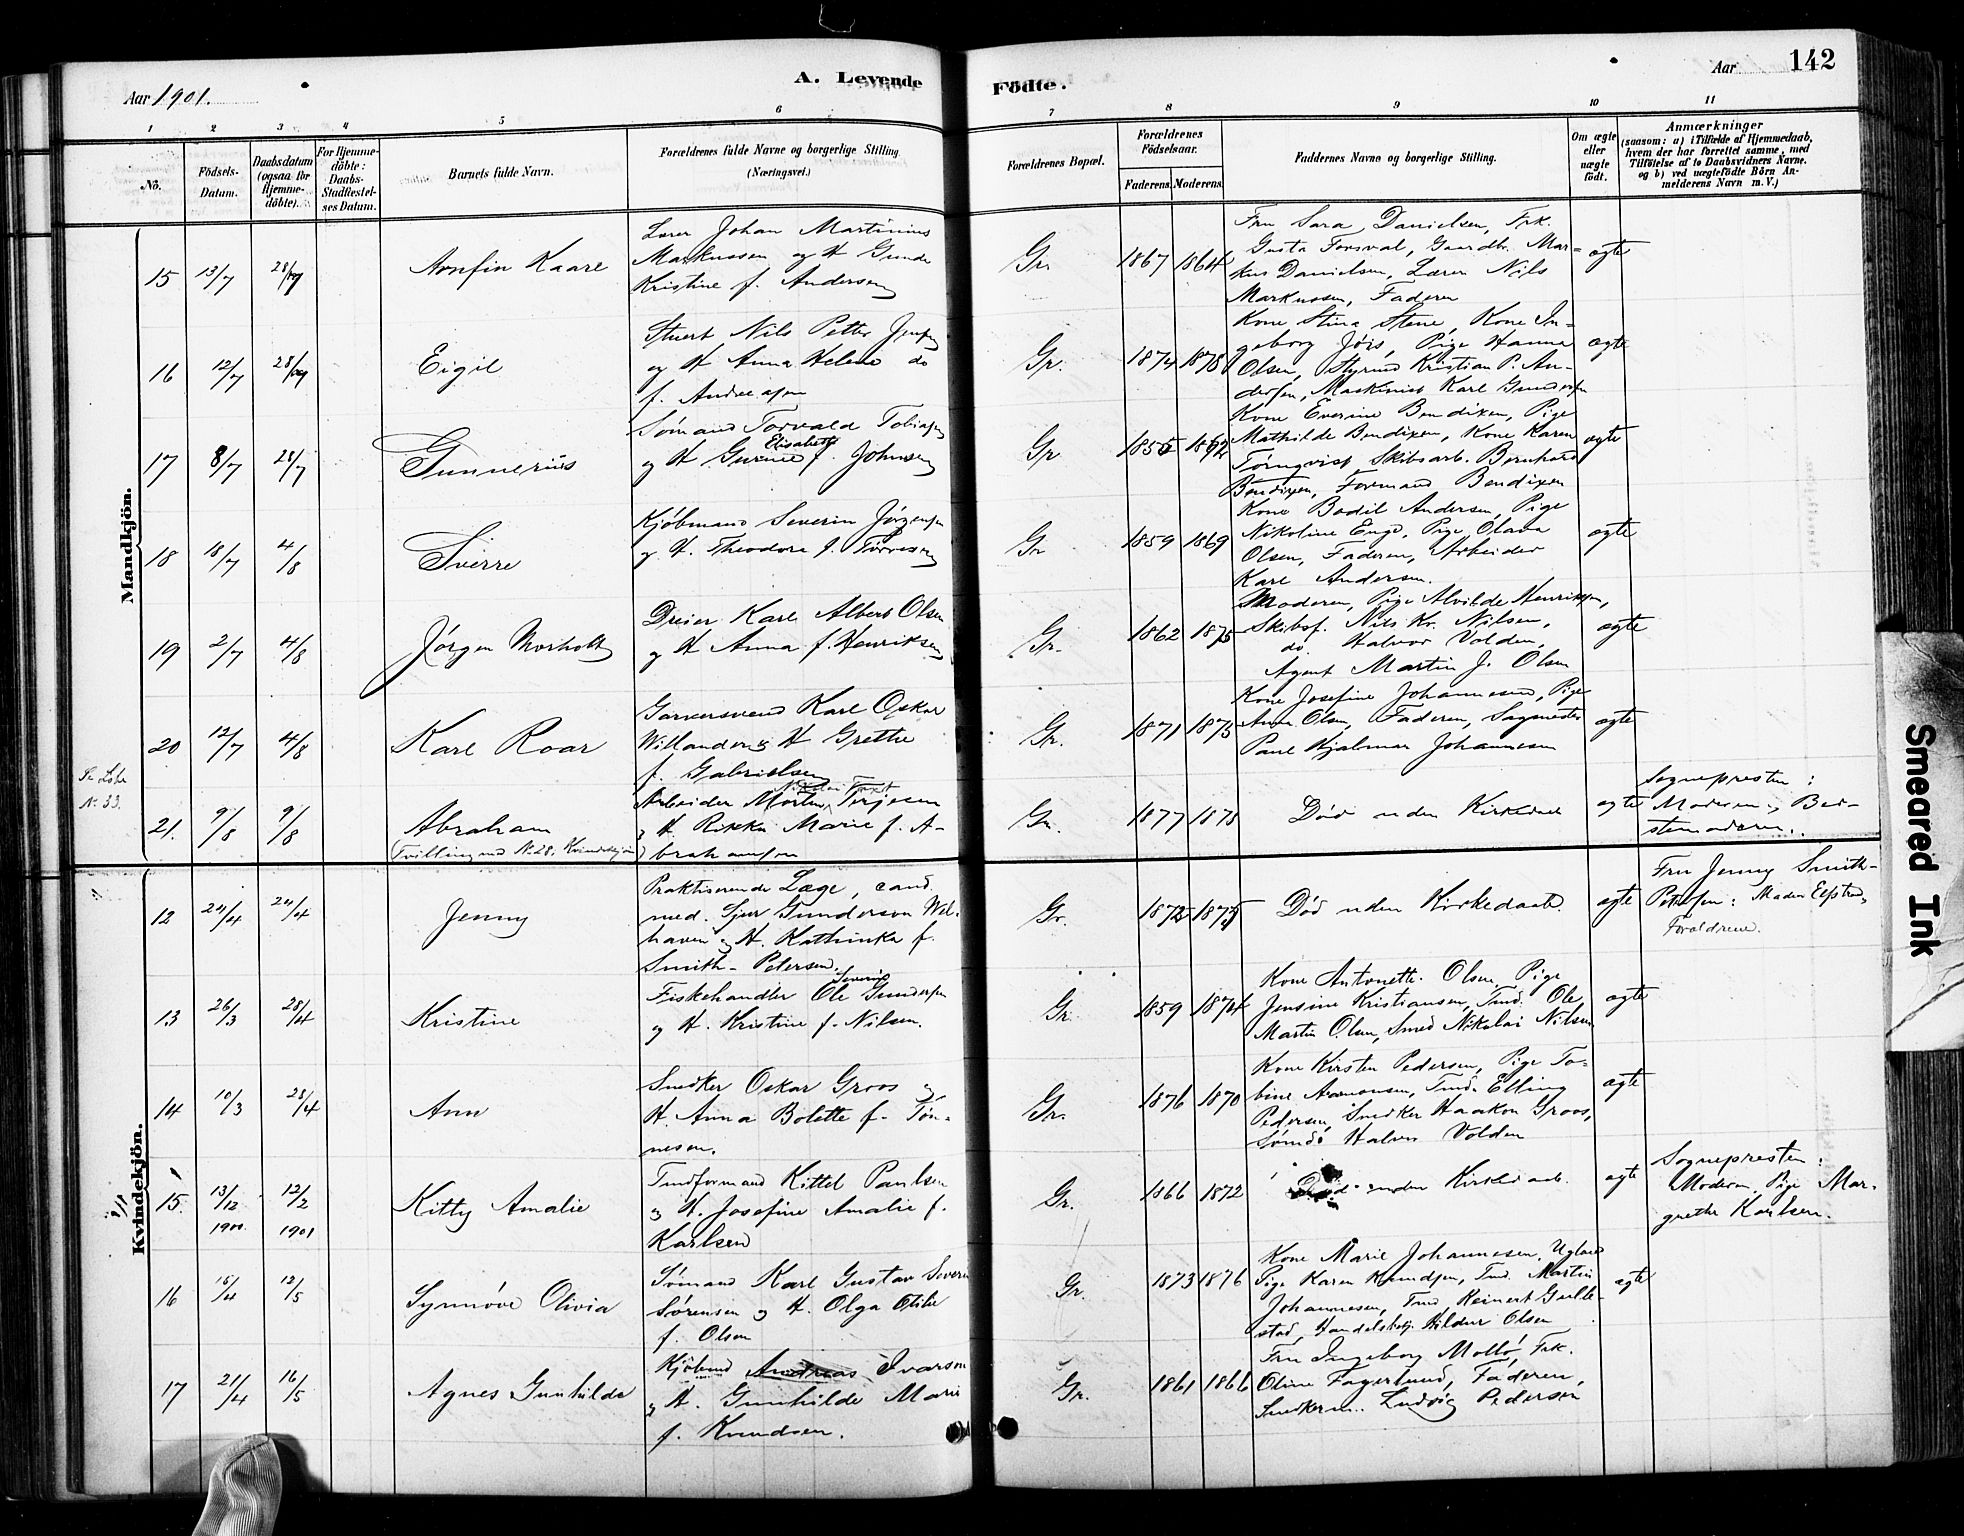 Aar 1901.
A. Levende
Födte.
Aar
142
1
2
3
4
5
6
7
8
9
10
11
No.
Födsels-
Datum.
Daabsdatum
(ogsaa for
Hjemme-
döbte).
For Hjemme-
döbte:
Daabs-
Stadfæstel-
ses Datum.
Barnets fulde Navn.
Forældrenes fulde Navne og borgerlige Stilling
(Næringsvei.)
Forældrenes Bopæl.
Forældrenes
Födselsaar.
Faderens.
Moderens.
Faddernes Navne og borgerlige Stilling.
Om ægte
eller
uægte
födt.
Anmærkninger
(saasom: a) i Tilfælde af Hjemmedaab,
hvem der har forrettet samme, med
Tilföielse af to Daabsvidners Navne.
og b) ved uægtefödte Börn An-
melderens Navn m.V.)
Mandkjön.
15
13/7
28/7
Arnfin Kaare
Lærer Johan Martinius
Markussen og H Gunda
Kristine f. Andersen
Gr.
1867
1864
Fru Sara Danielsen, Frk.
Gusta Forsval, Gaardbr. Mar-
kus Danielsen, Lærer Nils
Markussen, Faderen
ægte
16
12/7
28/7
Eigil
Stuert Nils Petter Jensen
og H Anna Helene do
f. Andreasen
Gr.
1874
1878
Kone Stina Stene, Kone In-
geborg Jörs, Pige Hanna
Olsen, Styrmd Kristian P. An-
dersen, Maskinist Karl Gundersen
ægte
17
8/7
28/7
Gunnerius
Sømand Torvald Tobiasen
og H Gurine Elisabeth f. Johnsen
Gr
1855
1862
Kone Everine Bendixen, Pige
Mathilde Bendixen, Kone Karen
Törnqvist Skibsarb. Bernhard
Bendixen, Formand Bendixen
ægte
18
18/7
4/8
Sverre
Kjöbmand Severin Jörgensen
og H. Theodora f. Torresen
Gr
1859
1869
Kone Bodil Andersen, Pige
Nikoline Enge, Pige Olava
Olsen, Faderen, Arbeider
Karl Andersen.
ægte
19
2/7
4/8
Jörgen Morholt
Dreier Karl Albert Olsen
og H Anna f. Henriksen
Gr.
1862
1875
Moderen, Pige Alvilde Henriksen,
Skibsf. Nils Kr. Nilsen,
do Halvor Volden,
Agent Martin J. Olsen
ægte
20
12/7
4/8
Karl Roar
Garversvend Karl Oskar
Willander og H Grethe
f. Gabrielsen
Gr.
1871
1873
Kone Josefine Johannesen, Pige
Anna Olsen, Faderen, Sagmester
Paul Hjalmar Johannesen
ægte
Se Liste
N. 33.
21.
9/8
9/8
Abraham
Tvilling med No 28, Kvindekjön
Arbeider Morten Terjesen
og H. Rikka Marie f. A-
brahamsen
Gr.
1877
1875
Död uden Kirkedaab
ægte
Sognepresten:
Moderen og Bed-
stemoderen.
Kvindekjön.
12
24/4
24/4
Jenny
Praktiserende Læge, cand.
med. Sjur Gunderson Wel-
haven og H. Kathinka f.
Smith-Petersen.
Gr.
1872
1875
Död uden Kirkedaab.
ægte
Fru Jenny Smith-
Petersen: Madam Elfstrøm,
Forældrene.
13
26/3
28/4
Kristine
Fiskehandler Ole Severin Gundersen
og H. Kristine f. Nilsen.
Gr.
1859
1874
Kone Antonette Olsen, Pige
Jensine Kristiansen, Tmd. Ole
Martin Olsen, Smed Nikolai Nilsen
ægte
14
10/3
28/4
Ann
Snedker Oskar Groos og
H. Anna Bolette f. Tön-
nesen.
Gr.
1876
1870
Kone Kirsten Pedersen, Pige To-
bine Aamonsen, Tmd. Elling
Pedersen, Snedker Haakon Groos,
Sømd. Halvor Volden
ægte
15.
13/12
1900
12/2
1901
Kitty Amalie
Tmdformand Kittel Paulsen
og H. Josefine Amalie f.
Karlsen
Gr.
1866
1872
Död uden Kirkedaab.
ægte
Sognepresten:
Moderen, Pige Mar-
grethe Karlsen.
16
15/4
12/5
Synnöve Olivia
Sømand Karl Gustav Severin
Sörensen og H. Olga Otilie
f. Olsen
Gr.
1873
1876
Kone Marie Johannesen, Ugland
Pige Karen Knudsen, Tmd. Martin
Johannesen, Tmd Reinert Gulle-
stad, Handelsbetj. Hildur Olsen
ægte
17
21/4
16/5
Agnes Gunhilda
Kjöbmd Andreas Ivarsen
og H. Gunhilde Marie
f. Knudsen.
Gr.
1861
1866
Fru Ingeborg Mollö, Frk.
Oline Fagerlund, Faderen,
Snedkerm. Ludvig Pedersen
Smeared Ink